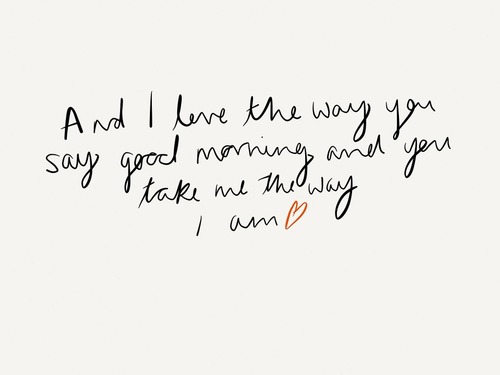 And I love the way you
say good morning and you
take me the way
I am